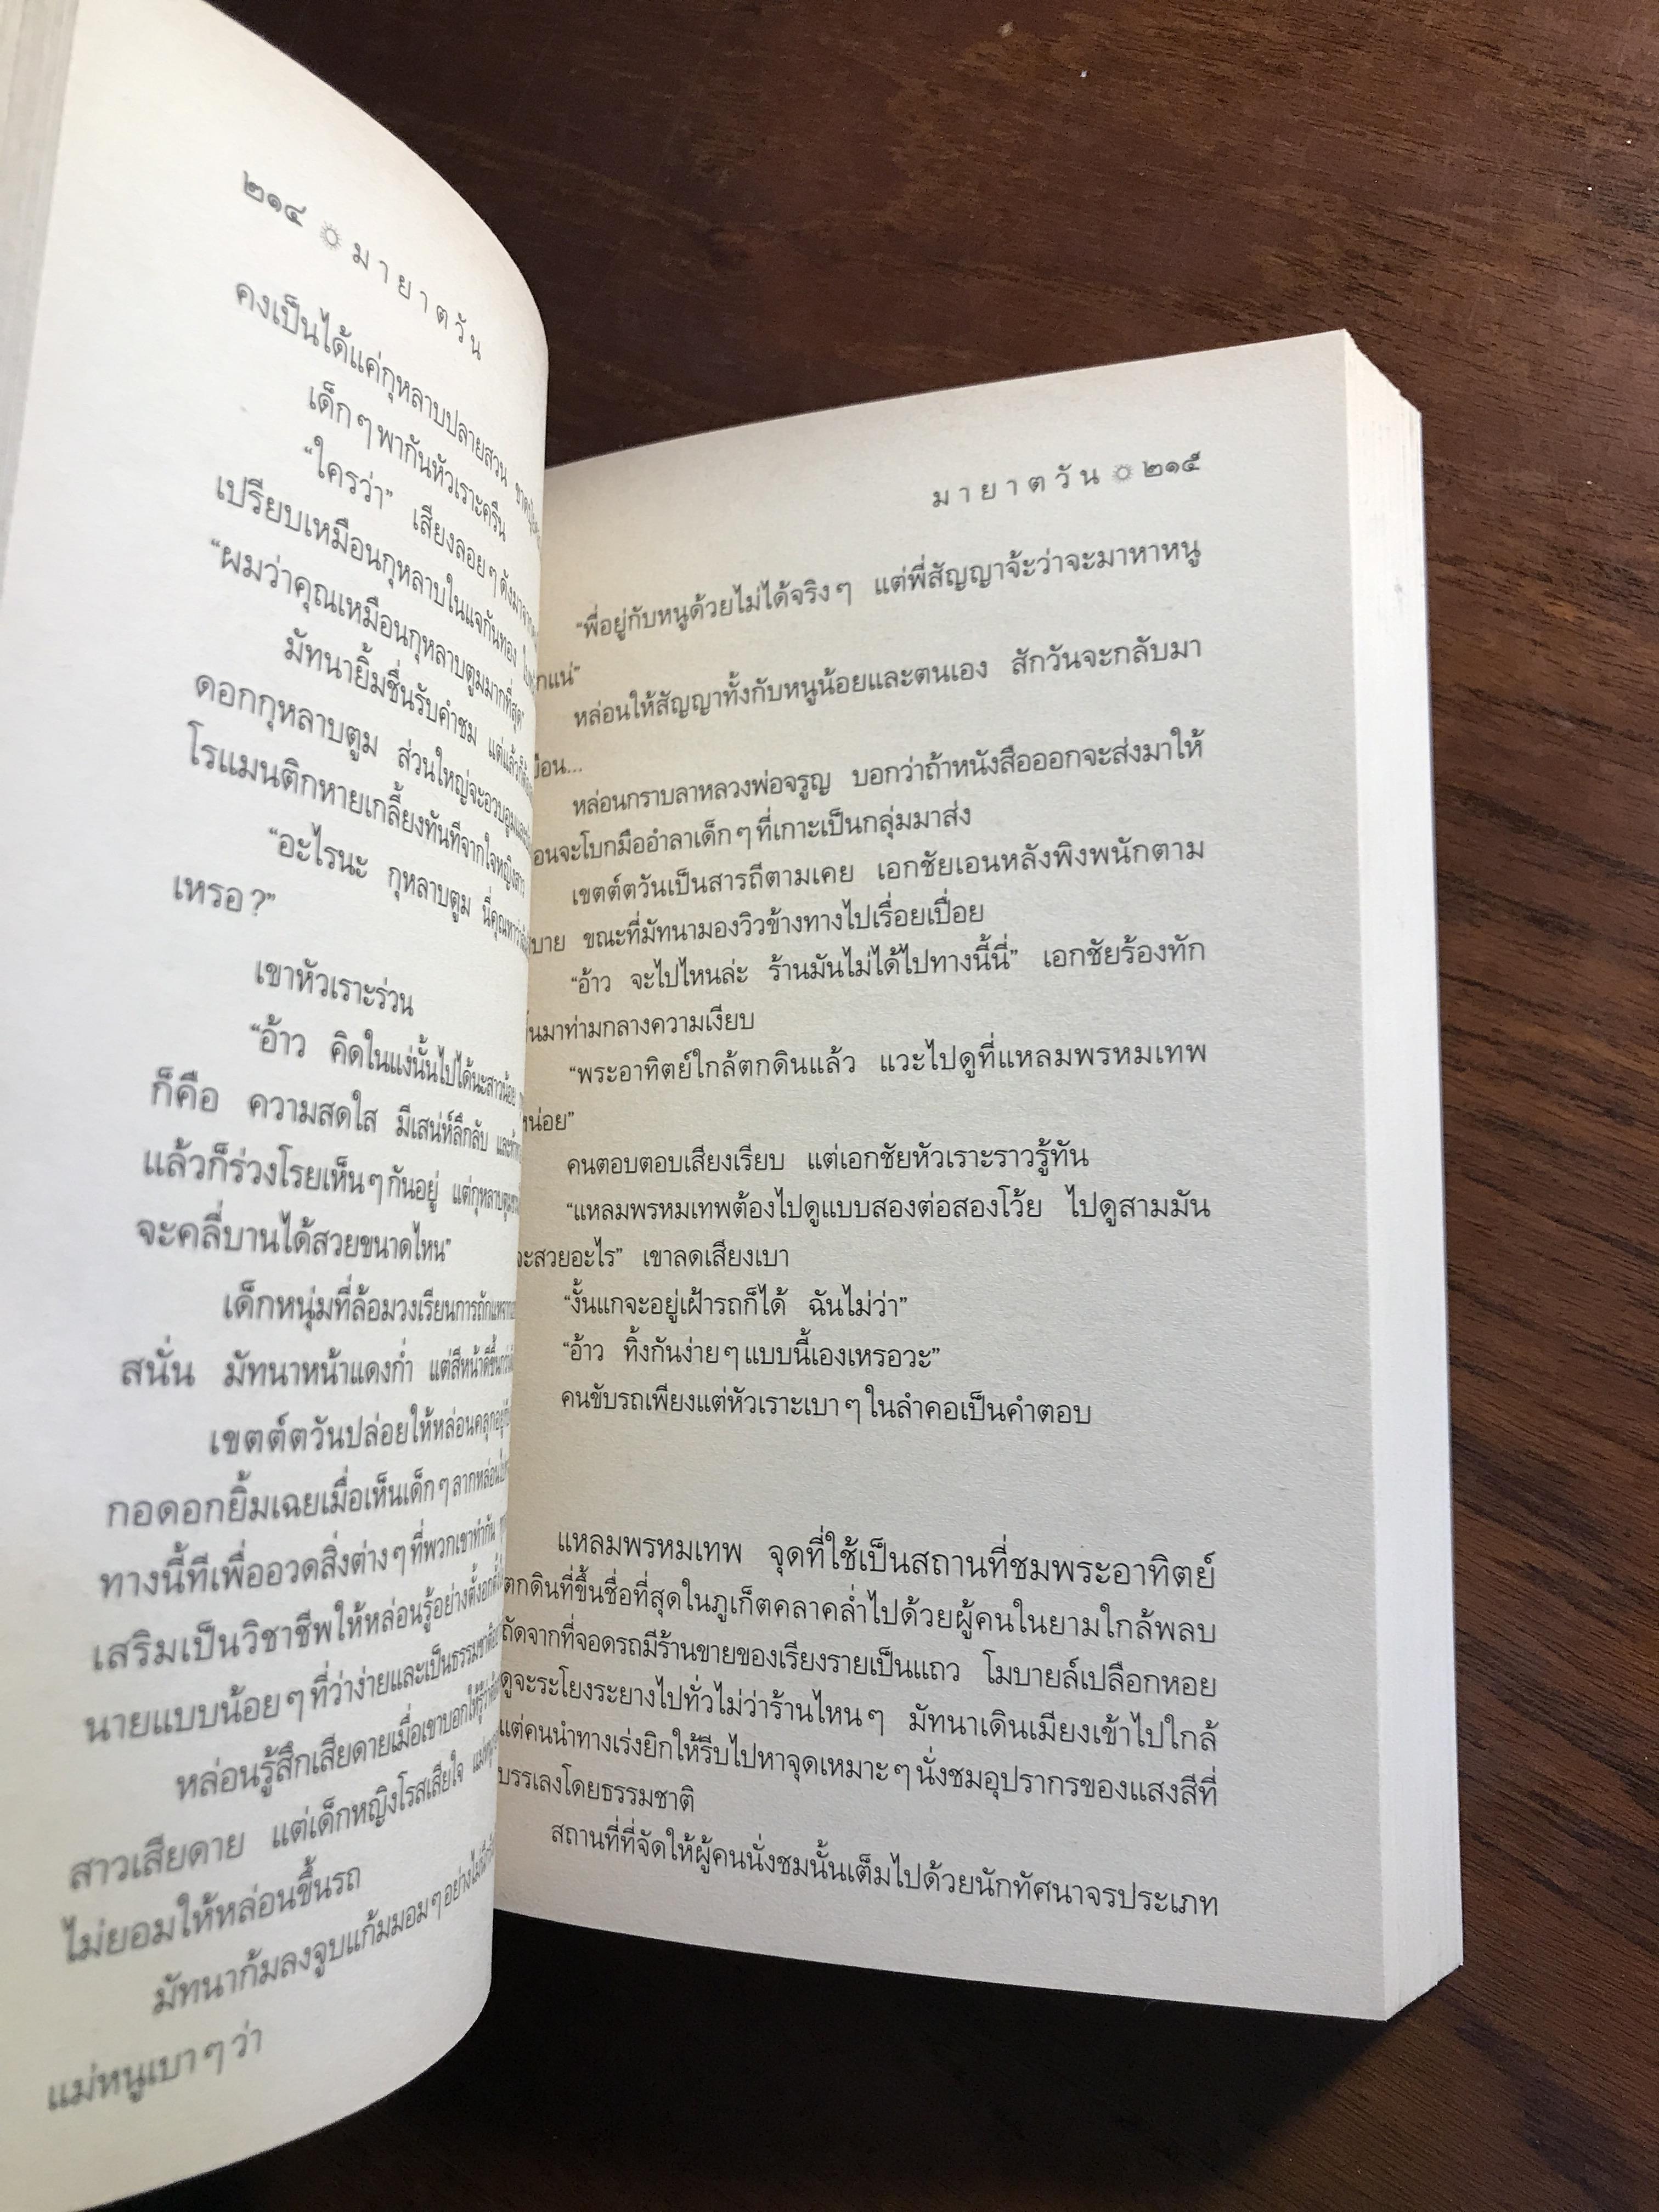 ๒๑๔ มายาตวัน
คงเป็นได้แค่กุหลาบปลายสวน
เด็กๆ พากันหัวเราะครืน
“ใครว่า” เสียงลอยๆ ดังมาจาก
เปรียบเหมือนกุหลาบในแจกันทอง
“ผมว่าคุณเหมือนกุหลาบตูมมากที่สุด”
มัทนายิ้มชื่นรับคำชม แต่แล้วก็
ดอกกุหลาบตูม ส่วนใหญ่จะอวบอูมและ
โรแมนติกหายเกลี้ยงทันทีจากใจหญิงสาว
“อะไรนะ กุหลาบตูม นี่คุณหาว่า
เหรอ?”
เขาหัวเราะร่วน
“อ้าว คิดในแง่นั้นไปได้นะสาวน้อย
ก็คือ ความสดใส มีเสน่ห์ลึกลับ และ
แล้วก็ร่วงโรยเห็นๆ กันอยู่ แต่กุหลาบตูม
จะคลี่บานได้สวยขนาดไหน”
เด็กหนุ่มที่ล้อมวงเรียนการถัก
สนั่น มัทนาหน้าแดงก่ำ แต่สีหน้าดีขึ้น
เขตต์ตวันปล่อยให้หล่อนคลุกอยู่
กอดอกยิ้มเฉยเมื่อเห็นเด็กๆ ลากหล่อนไป
ทางนี้ทีเพื่ออวดสิ่งต่างๆ ที่พวกเขาทำกัน
เสริมเป็นวิชาชีพให้หล่อนรู้อย่างตั้งอกตั้งใจ
นายแบบน้อยๆ ที่ว่าง่ายและเป็นธรรมชาติ
หล่อนรู้สึกเสียดายเมื่อเขาบอกให้รู้ว่า
สาวเสียดาย แต่เด็กหญิงโรสเสียใจ
ไม่ยอมให้หล่อนขึ้นรถ
มัทนาก้มลงจูบแก้มมอมๆ อย่างไม่
แม่หนูเบาๆ ว่า
มายาตวัน ๒๑๕
“พี่อยู่กับหนูด้วยไม่ได้จริงๆ แต่พี่สัญญาจ้ะว่าจะมาหาหนู
กแน่”
หล่อนให้สัญญาทั้งกับหนูน้อยและตนเอง สักวันจะกลับมา
ยือน...
หล่อนกราบลาหลวงพ่อจรูญ บอกว่าถ้าหนังสือออกจะส่งมาให้
อนจะโบกมืออำลาเด็กๆ ที่เกาะเป็นกลุ่มมาส่ง
เขตต์ตวันเป็นสารถีตามเคย เอกชัยเอนหลังพิงพนักตาม
บาย ขณะที่มัทนามองวิวข้างทางไปเรื่อยเปื่อย
“อ้าว จะไปไหนล่ะ ร้านมันไม่ได้ไปทางนี้นี่” เอกชัยร้องทัก
ขึ้นมาท่ามกลางความเงียบ
“พระอาทิตย์ใกล้ตกดินแล้ว แวะไปดูที่แหลมพรหมเทพ
หน่อย”
คนตอบตอบเสียงเรียบ แต่เอกชัยหัวเราะราวรู้ทัน
“แหลมพรหมเทพต้องไปดูแบบสองต่อสองโว้ย ไปดูสามมัน
จะสวยอะไร” เขาลดเสียงเบา
“งั้นแกจะอยู่เฝ้ารถก็ได้ ฉันไม่ว่า”
“อ้าว ทิ้งกันง่ายๆ แบบนี้เองเหรอวะ”
คนขับรถเพียงแต่หัวเราะเบาๆ ในลำคอเป็นคำตอบ
แหลมพรหมเทพ จุดที่ใช้เป็นสถานที่ชมพระอาทิตย์
ตกดินที่ขึ้นชื่อที่สุดในภูเก็ตคลาคล่ำไปด้วยผู้คนในยามใกล้พลบ
ถัดจากที่จอดรถมีร้านขายของเรียงรายเป็นแถว โมบายล์เปลือกหอย
ดูจะระโยงระยางไปทั่วไม่ว่าร้านไหนๆ มัทนาเดินเมียงเข้าไปใกล้
แต่คนนำทางเร่งยิกให้รีบไปหาจุดเหมาะๆ นั่งชมอุปรากรของแสงสีที่
บรรเลงโดยธรรมชาติ
สถานที่ที่จัดให้ผู้คนนั่งชมนั้นเต็มไปด้วยนักทัศนาจรประเภท